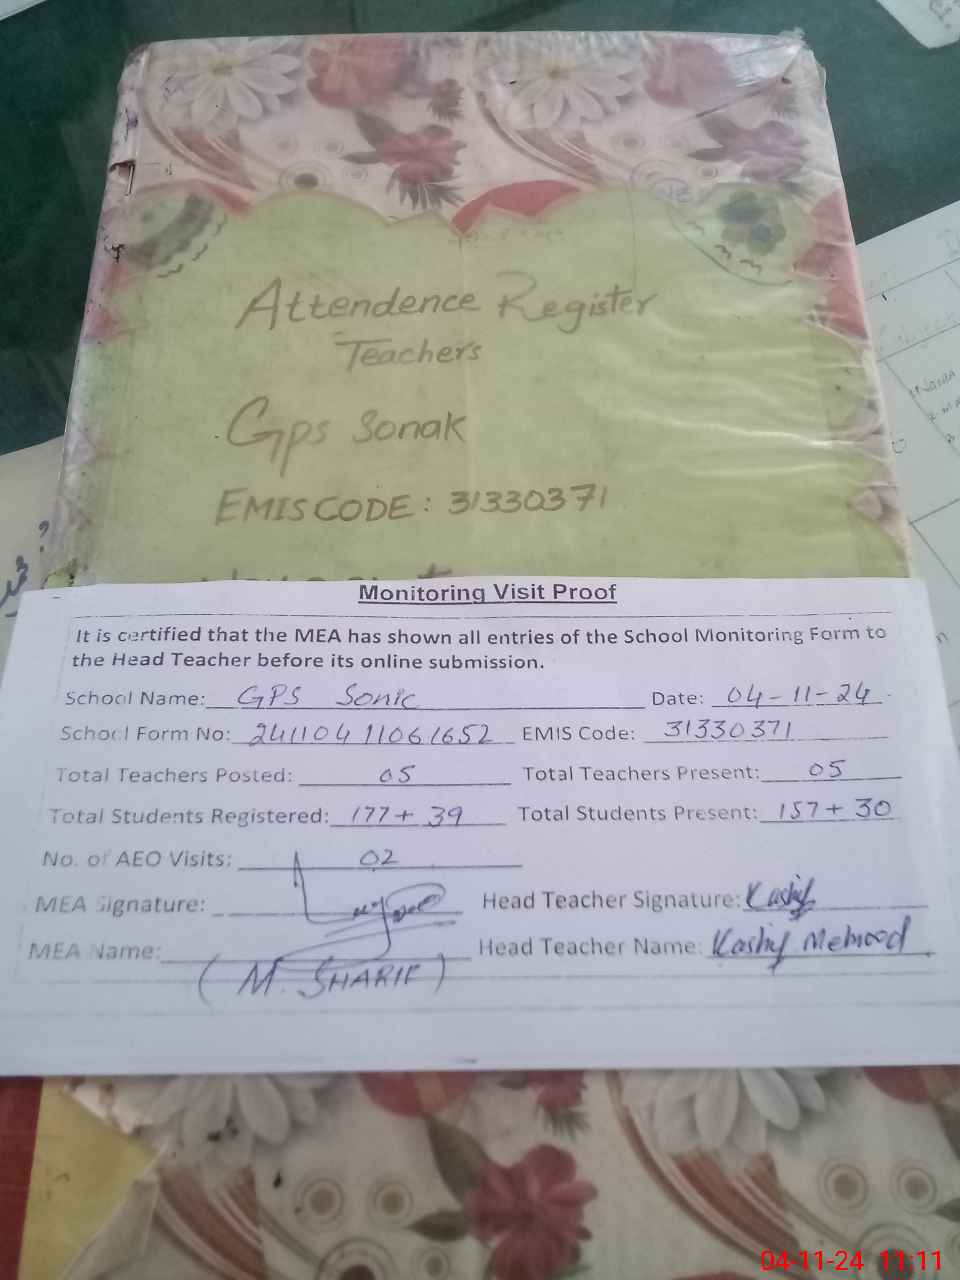 Attendence Register
Teachers
Gps Sonak
EMIS CODE : 31330371
Monitoring Visit Proof
It is certified that the MEA has shown all entries of the School Monitoring Form to
the Head Teacher before its online submission.
School Name: GPS Sonic Date: 04-11-24
School Form No: 24110411061652 EMIS Code: 31330371
Total Teachers Posted: 05 Total Teachers Present: 05
Total Students Registered: 177+ 39 Total Students Present: 157+ 30
No. of AEO Visits: 02
MEA Signature: Head Teacher Signature: Kashif
MEA Name: Head Teacher Name: Kashif Mehmood
(M. SHARIF)
04-11-24 11:11